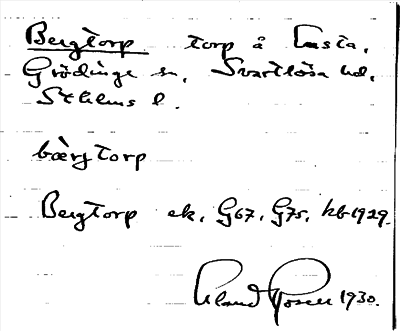 Bergtorp torp å Täcsta,
Grödinge sn, Svartlösa hd,
Sthlms l.
bærjtorp
Bergtorp ek, G67, G75, kb 1929.
Rosell 1930.